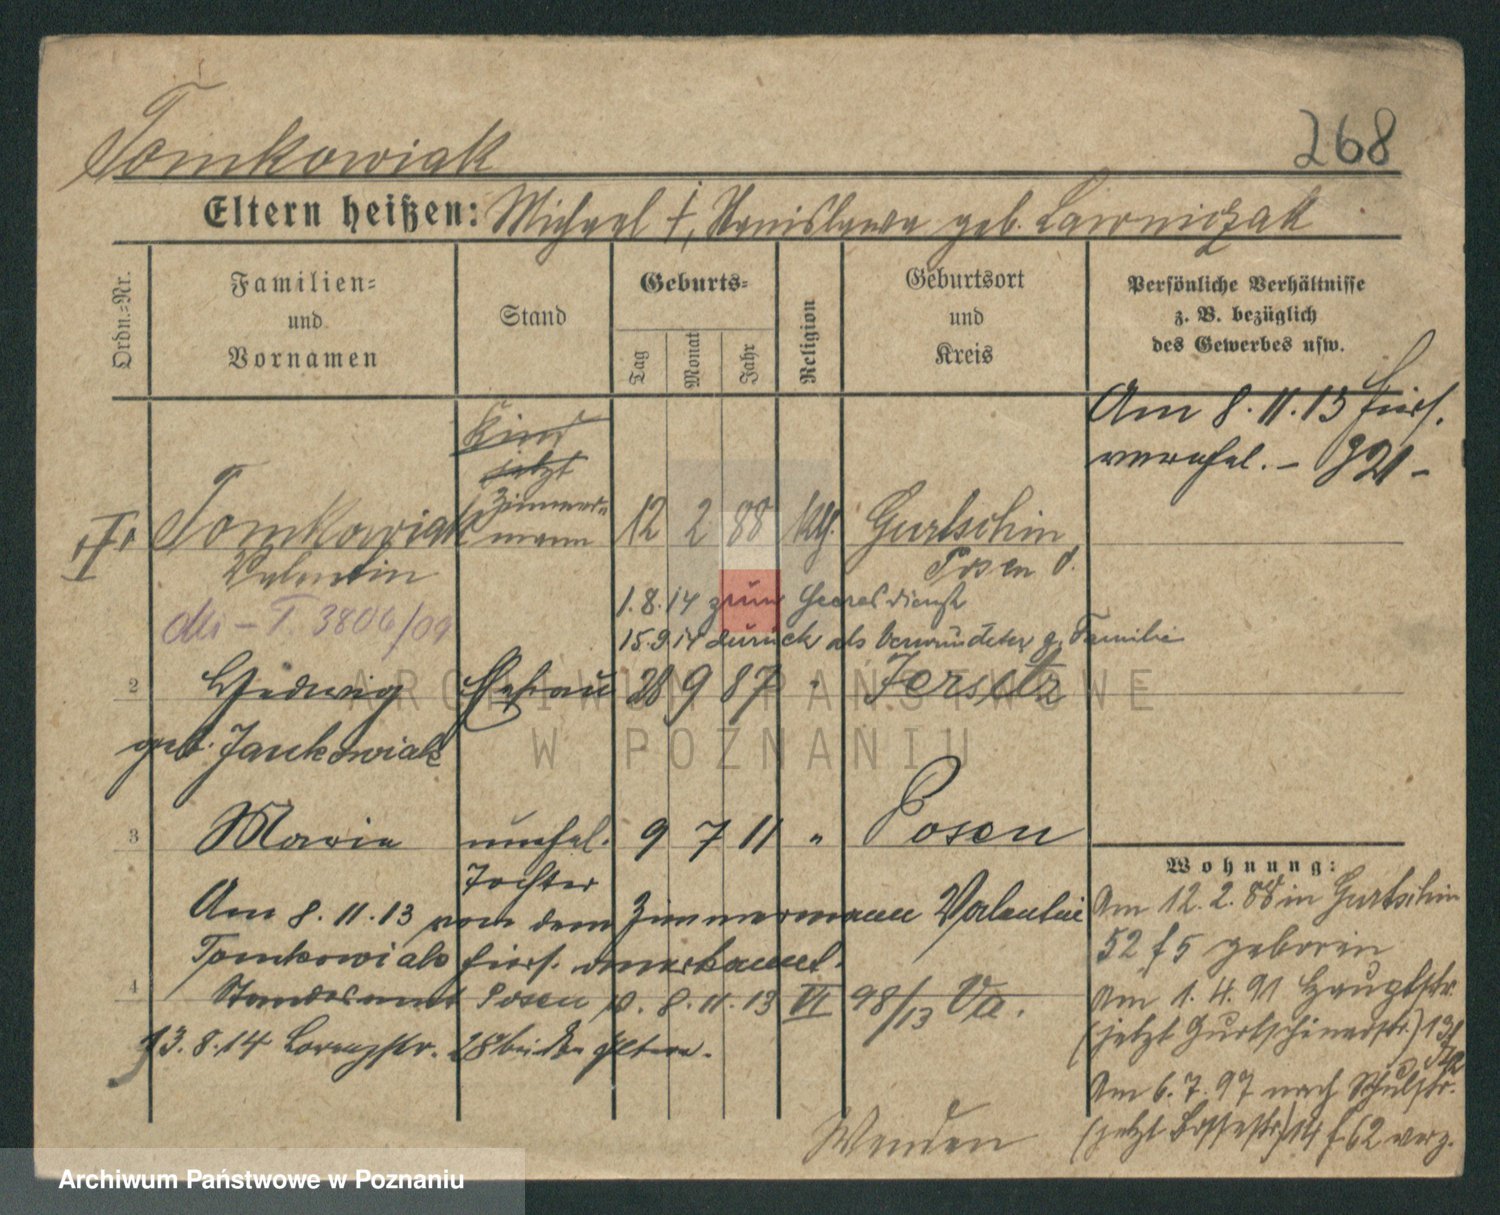 268
Tomkowiak
Eltern heißen: Michael †, Stanislawa geb. Lawniczak
Ordn.=Nr.
Familien=
und
Vornamen
Stand
Geburts=
Tag
Monat
Jahr
Religion
Geburtsort
und
Kreis
Persönliche Verhältnisse
z. B. bezüglich
des Gewerbes usw.
Am 8. 11. 13 hier
verehel. –
Kind
jetzt
Zimmer=
mann
I. Tomkowiak 12 2 88 kth. Gurtschin
Valentin Posen O.
T. 3806/09
1. 8. 14 zum Heeresdienst
15.9.14 zurück als Verwundeter z. Familie
2 Hedwig Ehefrau 28 9 87 " Jersitz
geb. Jankowiak
3 Maria unehel. 9 7 11 " Posen
Tochter
Am 8. 11. 13 von dem Zimmermann Valentin
Tomkowiak hier anerkannt.
4 Standesamt Posen v. 8. 11. 13 VI 98/13
13. 8. 14 28 bei den Eltern.
Wenden
Wohnung:
Am 12. 2. 88 in Gurtschin
52 geboren
Am 1. 4. 91 Hauptstr.
(jetzt Gurtschinerstr.) 131
Am 6. 7. 97 nach Schulstr.
(jetzt 14 62 verz.
ARCHIWUM PAŃSTWOWE
W POZNANIU
Archiwum Państwowe w Poznaniu